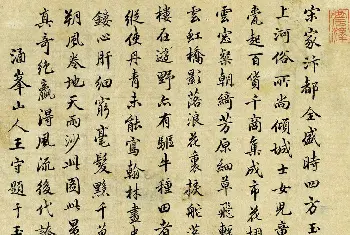 宋家汴都全盛時四方玉
上河俗所尚傾城士女兒童
甍起百貨千商集成市花棚
雲窓粲朝綺芳原細草飛輕
雲虹橋影落浪花裏捩舵
樓在遊野亦有驅牛種田者
縱使丹青未能寫翰林畫史
鏤心肝細窮毫髮黟千萬
朔風卷地天雨沙此圖此景
真奇絕贏得風流後代誇
涵峯山人王守題于玉